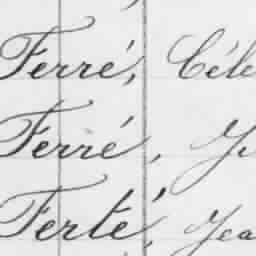 Ferré, Céle
Ferré, Je
Ferté, Jea